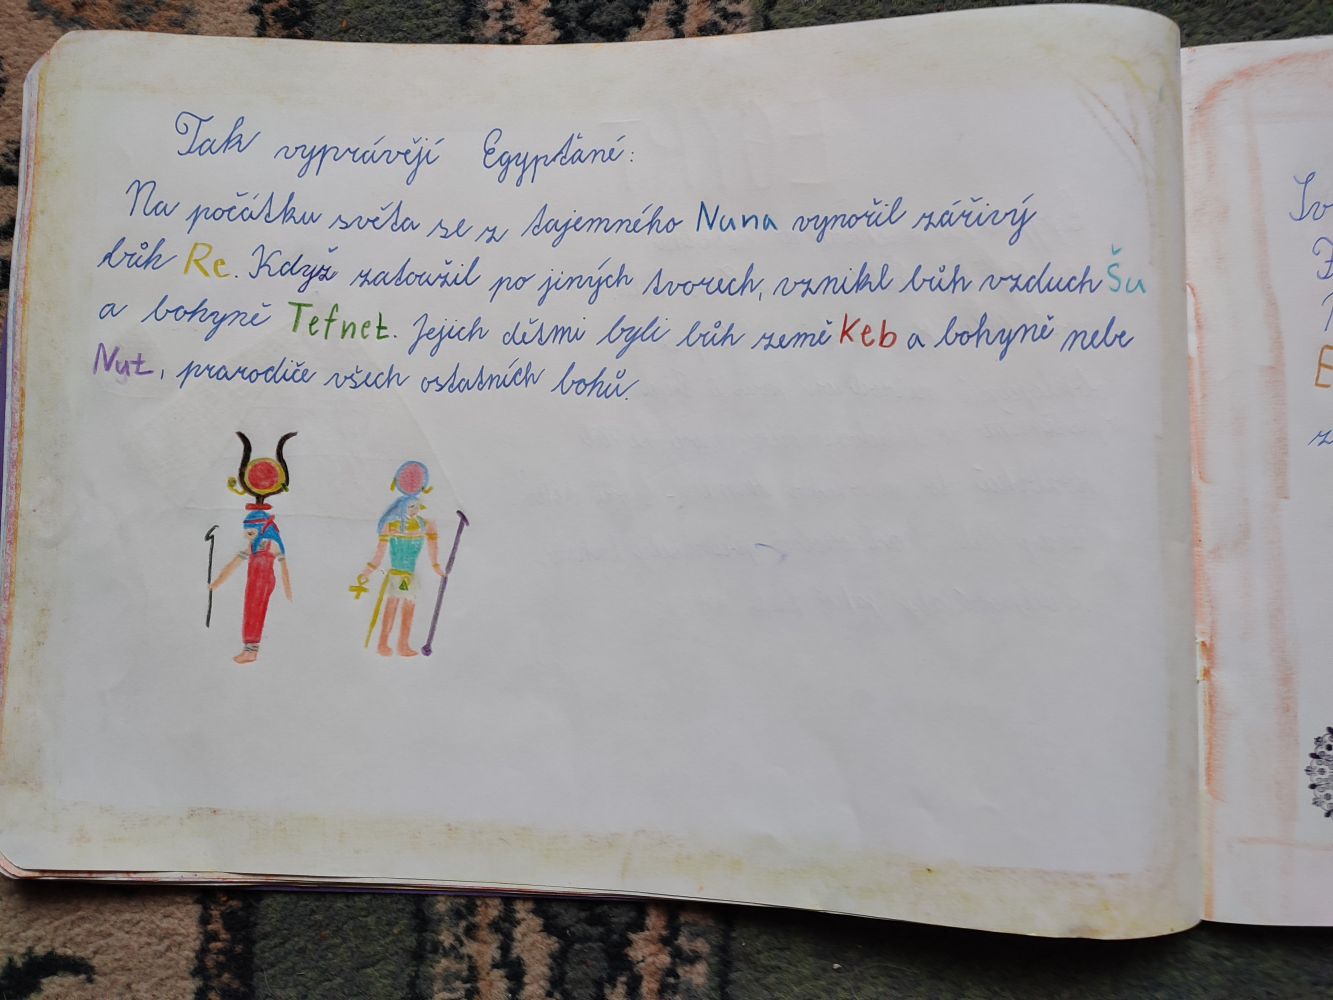 Tak vyprávějí Egypťané:
Na počátku světa se z tajemného Nuna vynořil zářivý
bůh Re. Když zatoužil po jiných tvorech, vznikl bůh vzduch Šu
a bohyně Tefnet. Jejich dětmi byli bůh země Keb a bohyně nebe
Nut, prarodiče všech ostatních bohů.